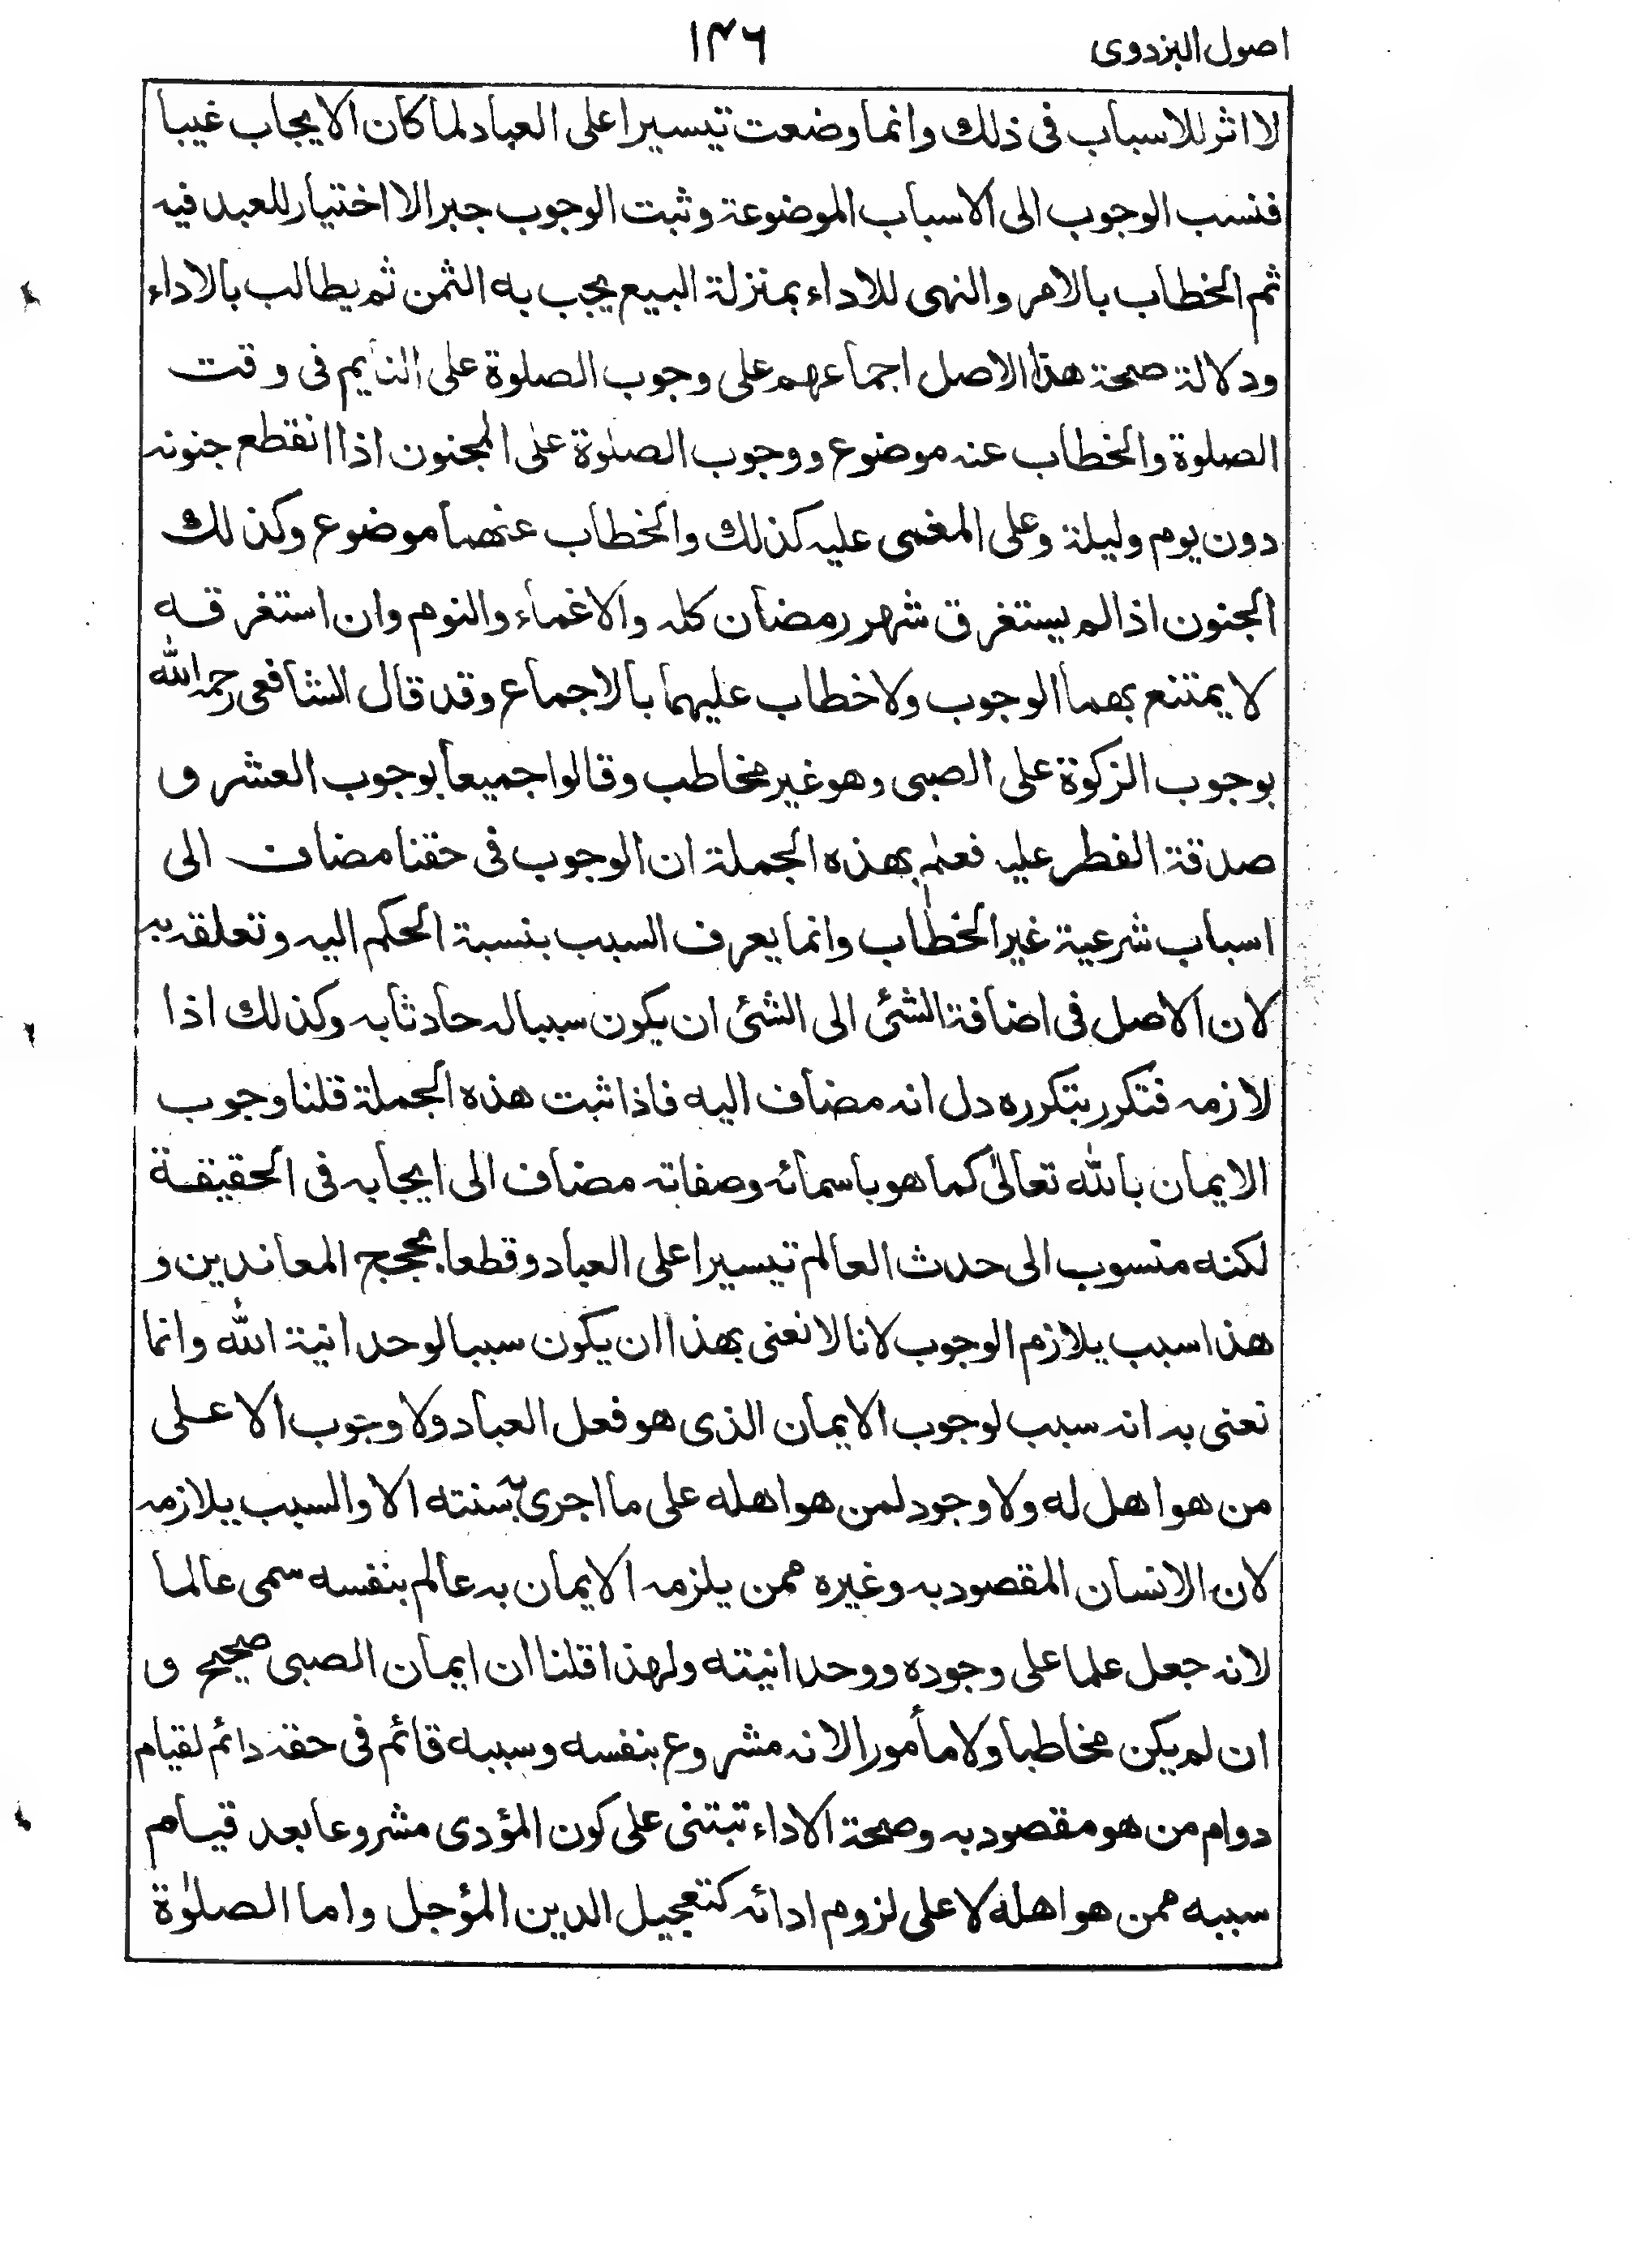 اصول البزدوی ۱۴۶
لا اثر للاسباب فی ذلك وانما وضعت تيسيرا علی العباد لما كان الايجاب غيبا
فنسب الوجوب الی الاسباب الموضوعة وثبت الوجوب جبرا لا اختيار للعبد فيه
ثم الخطاب بالامر والنهی للاداء بمنزلة البيع يجب به الثمن ثم يطالب بالاداء
ودلالة صحة هذا الاصل اجماعهم علی وجوب الصلوة علی النايم فی وقت
الصلوة والخطاب عنه موضوع ووجوب الصلوة علی المجنون اذا انقطع جنونه
دون يوم وليلة وعلی المغمی عليه كذلك والخطاب عنهما موضوع وكذلك
الجنون اذا لم يستغرق شهر رمضان كله والاغماء والنوم وان استغرقه
لا يمتنع بهما الوجوب ولا خطاب عليهما بالاجماع وقد قال الشافعی رحمه الله
بوجوب الزكوة علی الصبی وهو غير مخاطب وقالوا جميعا بوجوب العشر و
صدقة الفطر عليه فعلم بهذه الجملة ان الوجوب فی حقنا مضاف الی
اسباب شرعية غير الخطاب وانما يعرف السبب بنسبة الحكم اليه وتعلقه به
لان الاصل فی اضافة الشئی الی الشئی ان يكون سببا له حادثا به وكذلك اذا
لازمه فتكرر بتكرره دل انه مضاف اليه فاذا ثبت هذه الجملة قلنا وجوب
الايمان بالله تعالیٰ كما هو باسمائه وصفاته مضاف الی ايجابه فی الحقيقة
لكنه منسوب الی حدث العالم تيسيرا علی العباد وقطعا بحجج المعاندين و
هذا سبب يلازم الوجوب لانا لا نعنی بهذا ان يكون سببا لوحدانية الله وانما
نعنی به انه سبب لوجوب الايمان الذی هو فعل العباد ولا وجوب الا علی
من هو اهل له ولا وجود لمن هو اهله علی ما اجری به سنته الا والسبب يلازمه
لان الانسان المقصود به وغيره ممن يلزمه الايمان به عالم بنفسه سمی عالما
لانه جعل علما علی وجوده ووحدانيته ولهذا قلنا ان ايمان الصبی صحيح و
ان لم يكن مخاطبا ولا مأمورا لانه مشروع بنفسه وسببه قائم فی حقه دائم لقيام
دوام من هو مقصود به وصحة الاداء تبتنی علی كون المؤدی مشروعا بعد قيام
سببه ممن هو اهله لا علی لزوم ادائه كتعجيل الدين المؤجل واما الصلوٰة